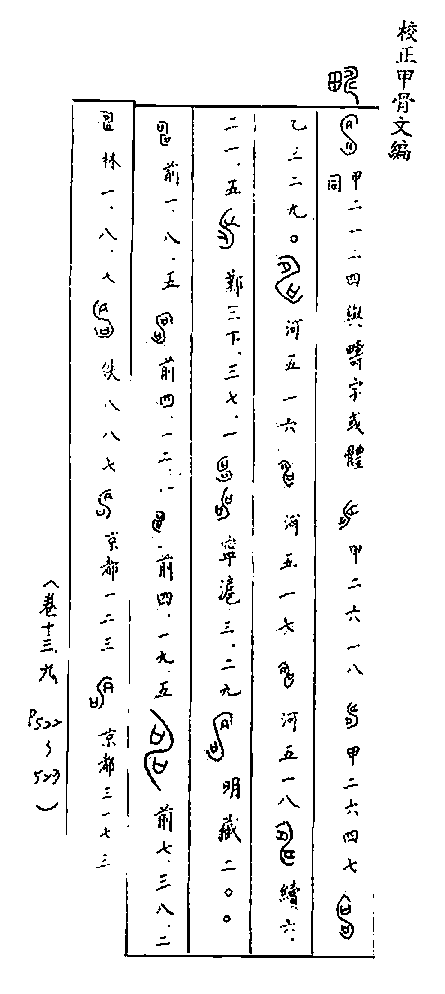 校正甲骨文編
甲二一二四與疇字或體同 甲二六一八 甲二六四七
乙三二九〇 河五一六 河五一七 河五一八 續六.
二一.五 鄴三下.三七.一 寧滬三.二九 明藏二〇〇
前一.八.五 前四.一二.一 前四.一九.五 前七.三八.二
林一.八.七 佚八八七 京都一二三 京都三一七三
(卷十三.九 P522~523)